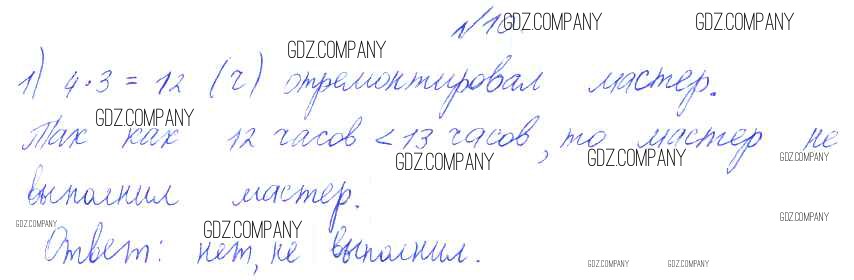 GDZ.COMPANY GDZ.COMPANY
GDZ.COMPANY
1) 4·3 = 12 (ч) отремонтировал мастер.
GDZ.COMPANY
Так как 12 часов < 13 часов, то мастер не
GDZ.COMPANY GDZ.COMPANY GDZ.COMPANY
выполнил мастер.
GDZ.COMPANY GDZ.COMPANY GDZ.COMPANY
Ответ: нет, не выполнил.
GDZ.COMPANY GDZ.COMPANY